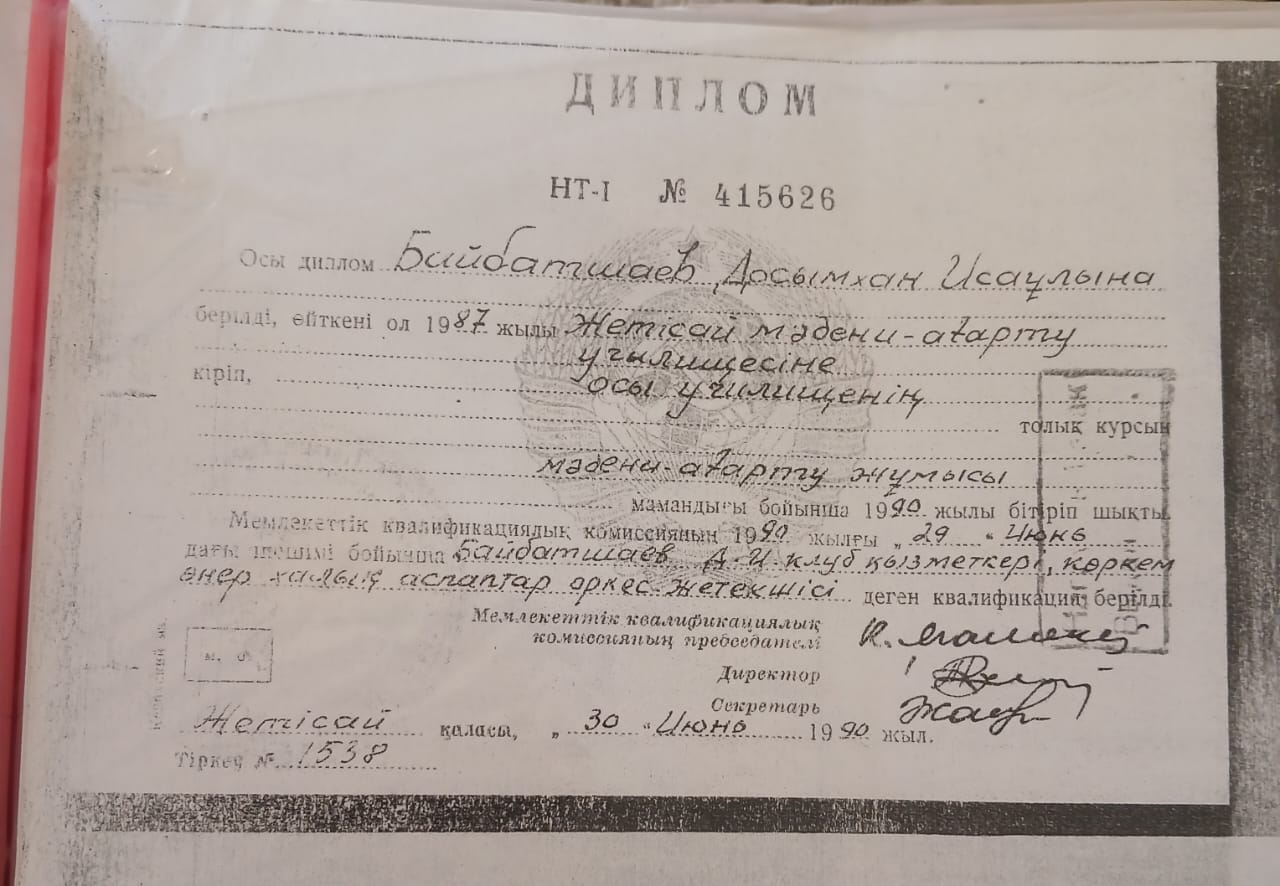 ДИПЛОМ
НТ-I № 415626
Осы диплом Байбатшаев Досымхан Исаұлына
берілді, өйткені ол 1987 жылы Жетісай мәдени-ағарту
училищесіне
кіріп, осы училищенің
толық курсын
мәдени-ағарту жұмысы
мамандығы бойынша 1990 жылы бітіріп шықты.
Мемлекеттік квалификациялық комиссияның 1990 жылғы „29" Июнь
дағы шешімі бойынша Байбатшаев Д-И клуб қызметкері, көркем
өнер халық аспаптар оркес. жетекшісі деген квалификация берілді.
Мемлекеттік квалификациялық
комиссияның председателі
Директор
Секретарь
м. о.
Жетісай қаласы, „30" Июнь 1990 жыл.
Тіркеу № 1538